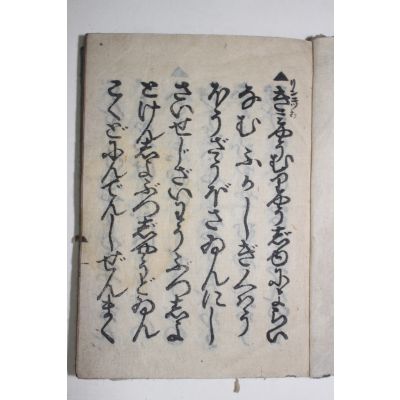 ▲きミやうむりやうじゆによらい
なむふかしぎくわう
ほうざうぼさゐんにし
さいせじざいわうぶつしよ
とけんしよぶつじやうどゐん
こくどにんでんしぜんまく